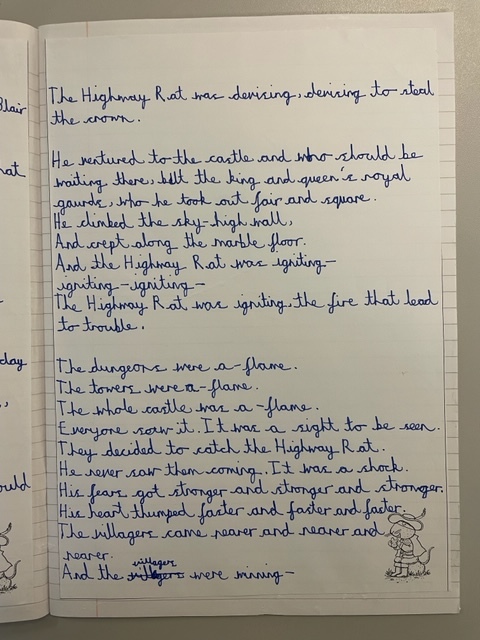 Blair
The Highway Rat was devising, devising to steal
the crown.
He ventured to the castle and who should be
waiting there, but the king and queen's royal
gaurds, who he took out fair and square.
He climbed the sky-high wall,
And crept along the marble floor.
And the Highway Rat was igniting-
igniting-igniting-
The Highway Rat was igniting, the fire that lead
to trouble.
day
The dungeons were a-flame.
The towers were a-flame.
The whole castle was a-flame.
Everyone saw it. It was a sight to be seen.
They decided to catch the Highway Rat.
He never saw them coming. It was a shock.
His fears got stronger and stronger and stronger.
His heart thumped faster and faster and faster.
The villagers came nearer and nearer and
nearer.
villagers
And the were winning-